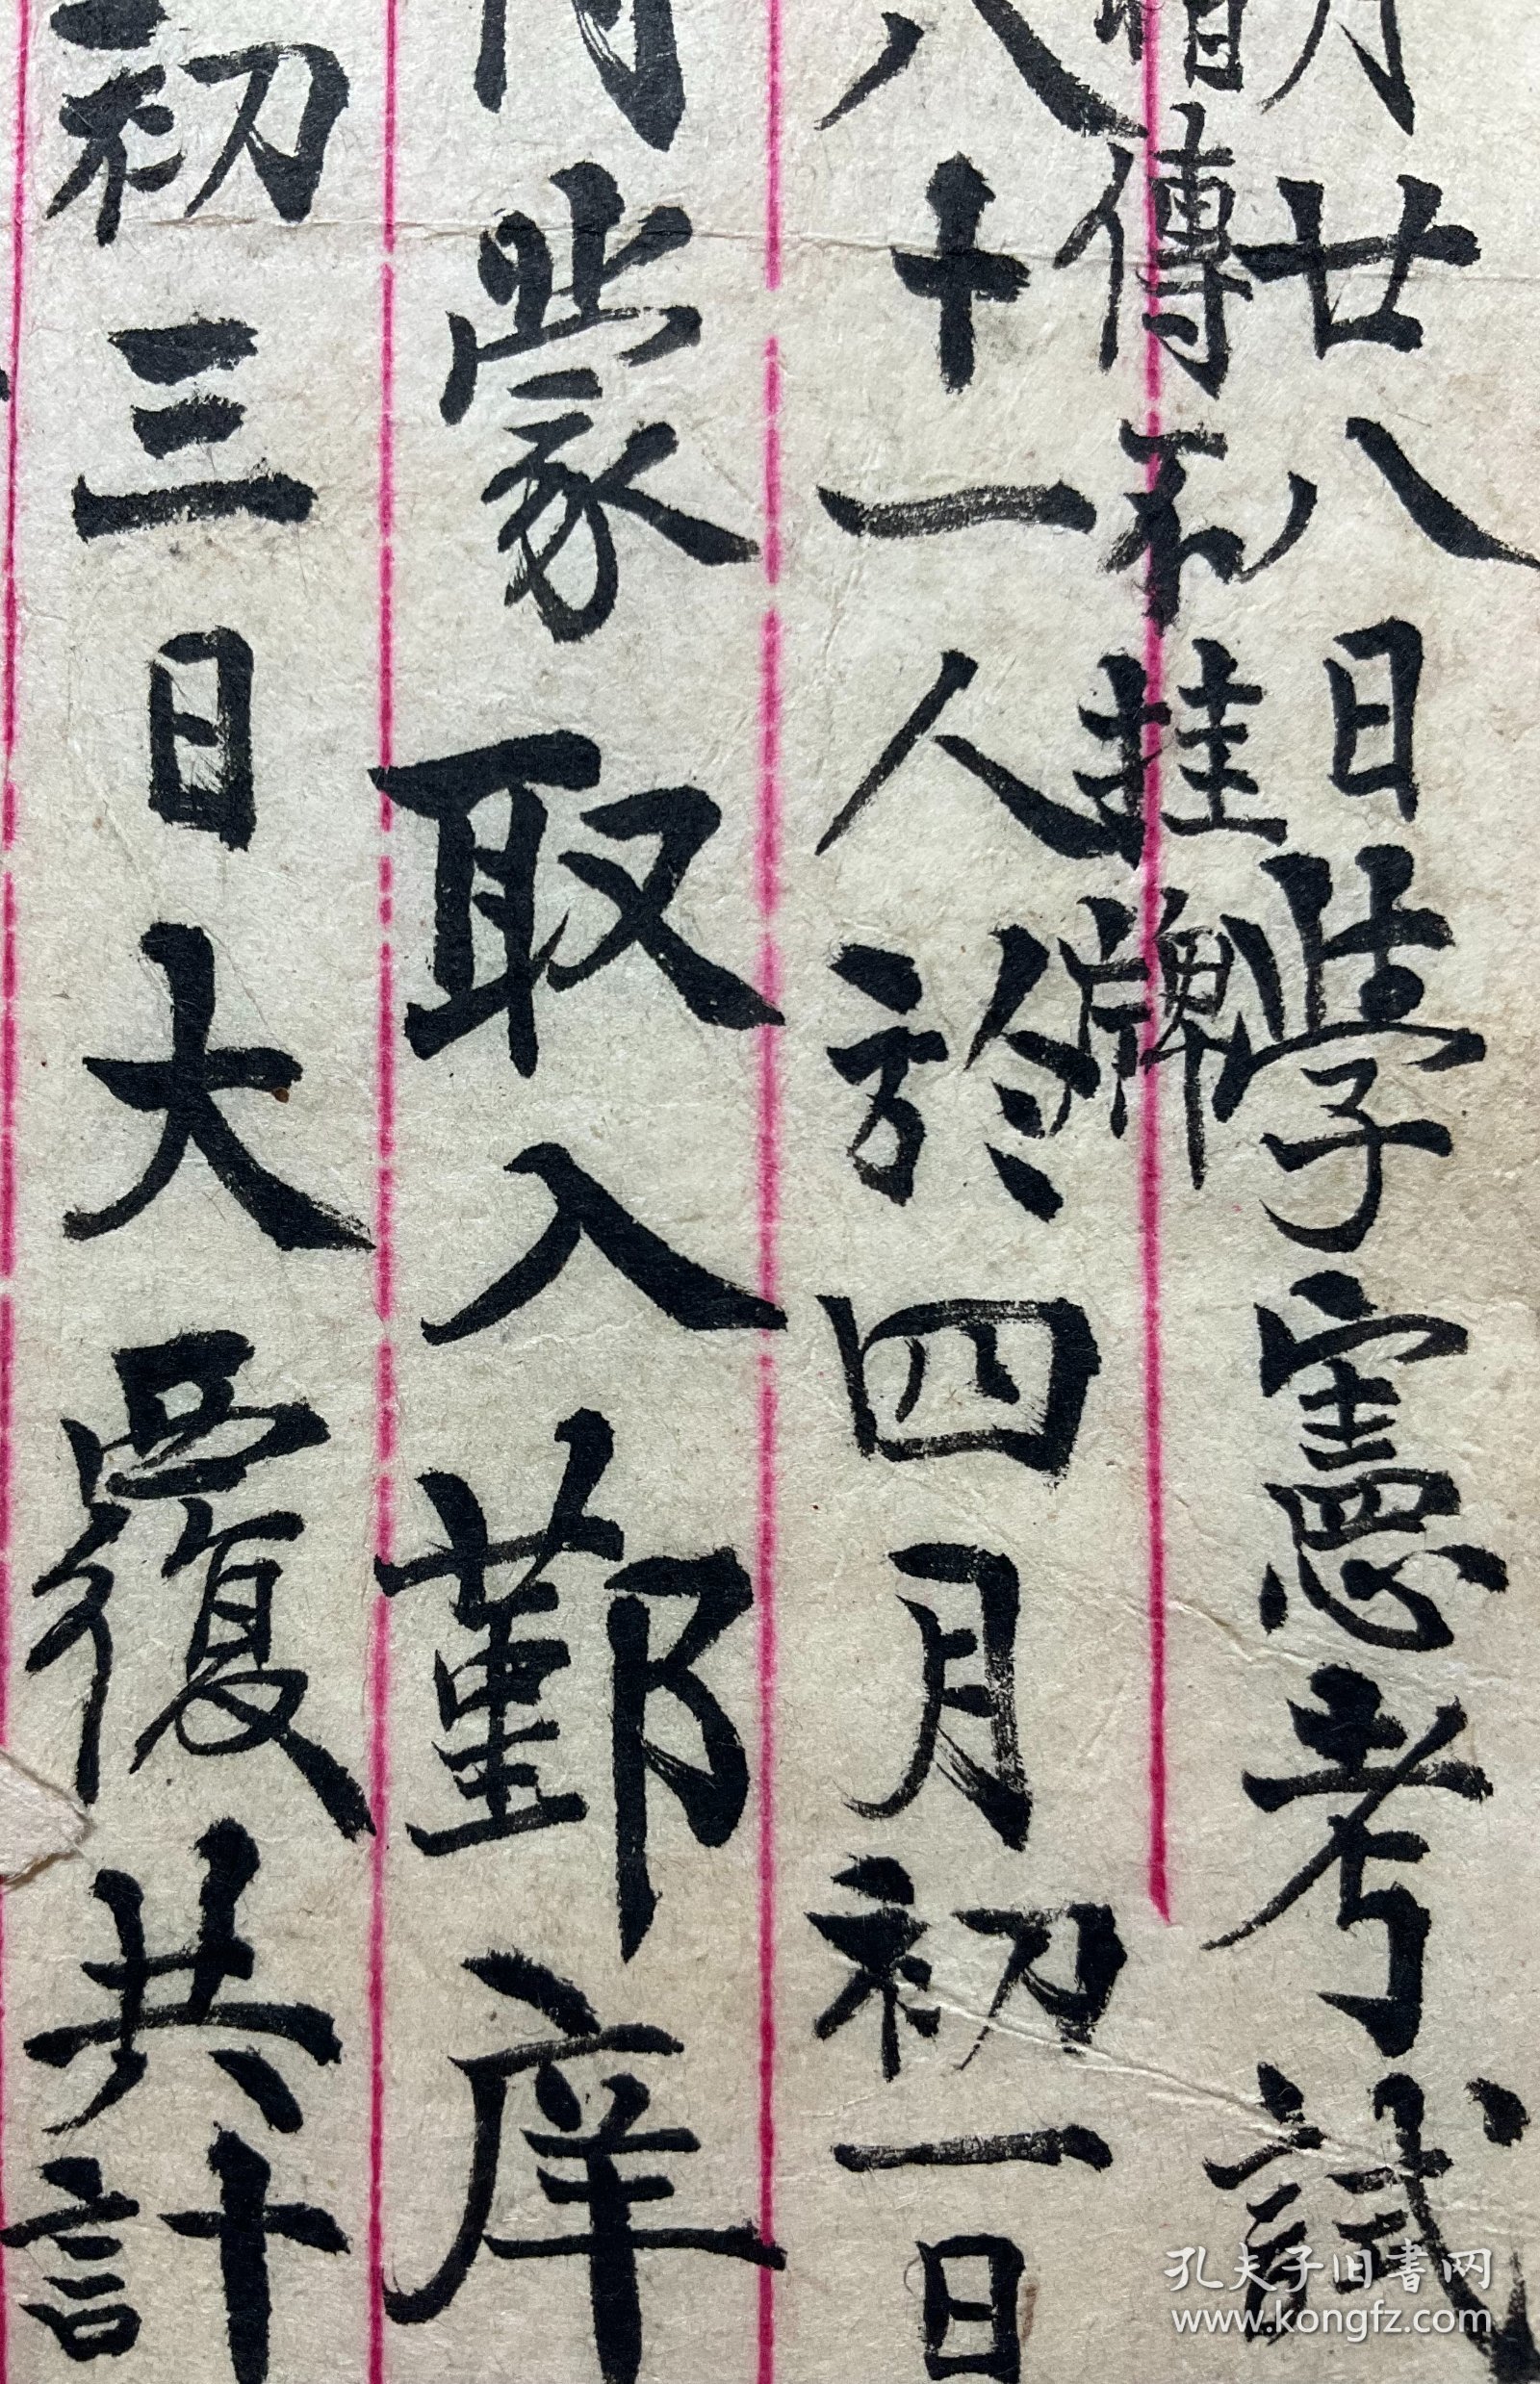 月廿八日學憲考試
傳不挂牌
八十一人於四月初一日
蒙取入鄞庠
初三日大覆共計十
孔夫子旧书网
www.kongfz.com